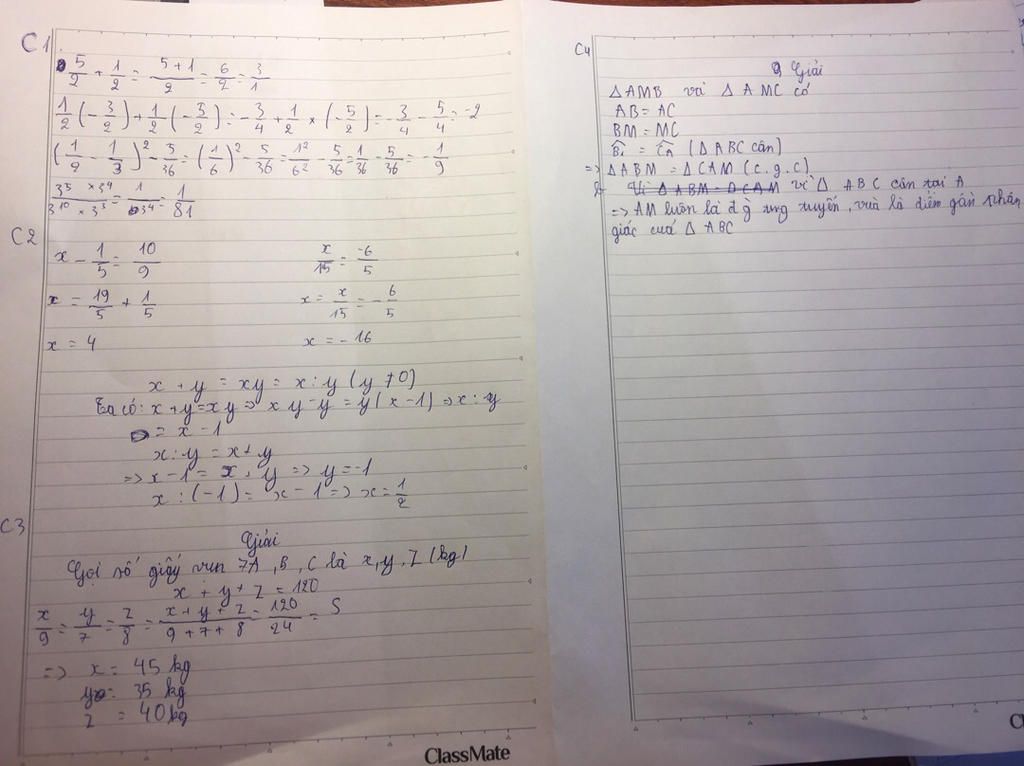 C1
5/2 + 1/2 = (5+1)/2 = 6/2 = 3/1
1/2 (-3/2) + 1/2 (-5/2) = -3/4 + 1/2 × (-5/2) = -3/4 - 5/4 = -2
(1/2 - 1/3)² - 5/36 = (1/6)² - 5/36 = 1²/6² - 5/36 = 1/36 - 5/36 = -1/9
(3⁵ × 3⁴)/(3¹⁰ × 3³) = 1/3⁴ = 1/81
C2
x - 1/5 = 10/9 x/15 = -6/5
x = 19/5 + 1/5 x = x/15 = -6/5
x = 4 x = -16
x + y = xy = x : y (y ≠ 0)
Ta có: x + y = xy => xy - y = y(x - 1) => x : y
= x - 1
x : y = x + y
=> x - 1 = x + y => y = -1
x : (-1) = x - 1 => x = 1/2
C3
Giải
Gọi số giấy vụn 7A, B, C là x, y, z (kg)
x + y + z = 120
x/9 = y/7 = z/8 = (x + y + z)/(9 + 7 + 8) = 120/24 = 5
=> x = 45 kg
y = 35 kg
z = 40 kg
ClassMate
C4
Giải
Δ AMB và Δ AMC có
AB = AC
BM = MC
(Δ ABC cân)
=> Δ ABM = Δ CAM (c.g.c)
vì Δ ABC cân tại A
=> AM luôn là
giác cuả Δ ABC
Cl